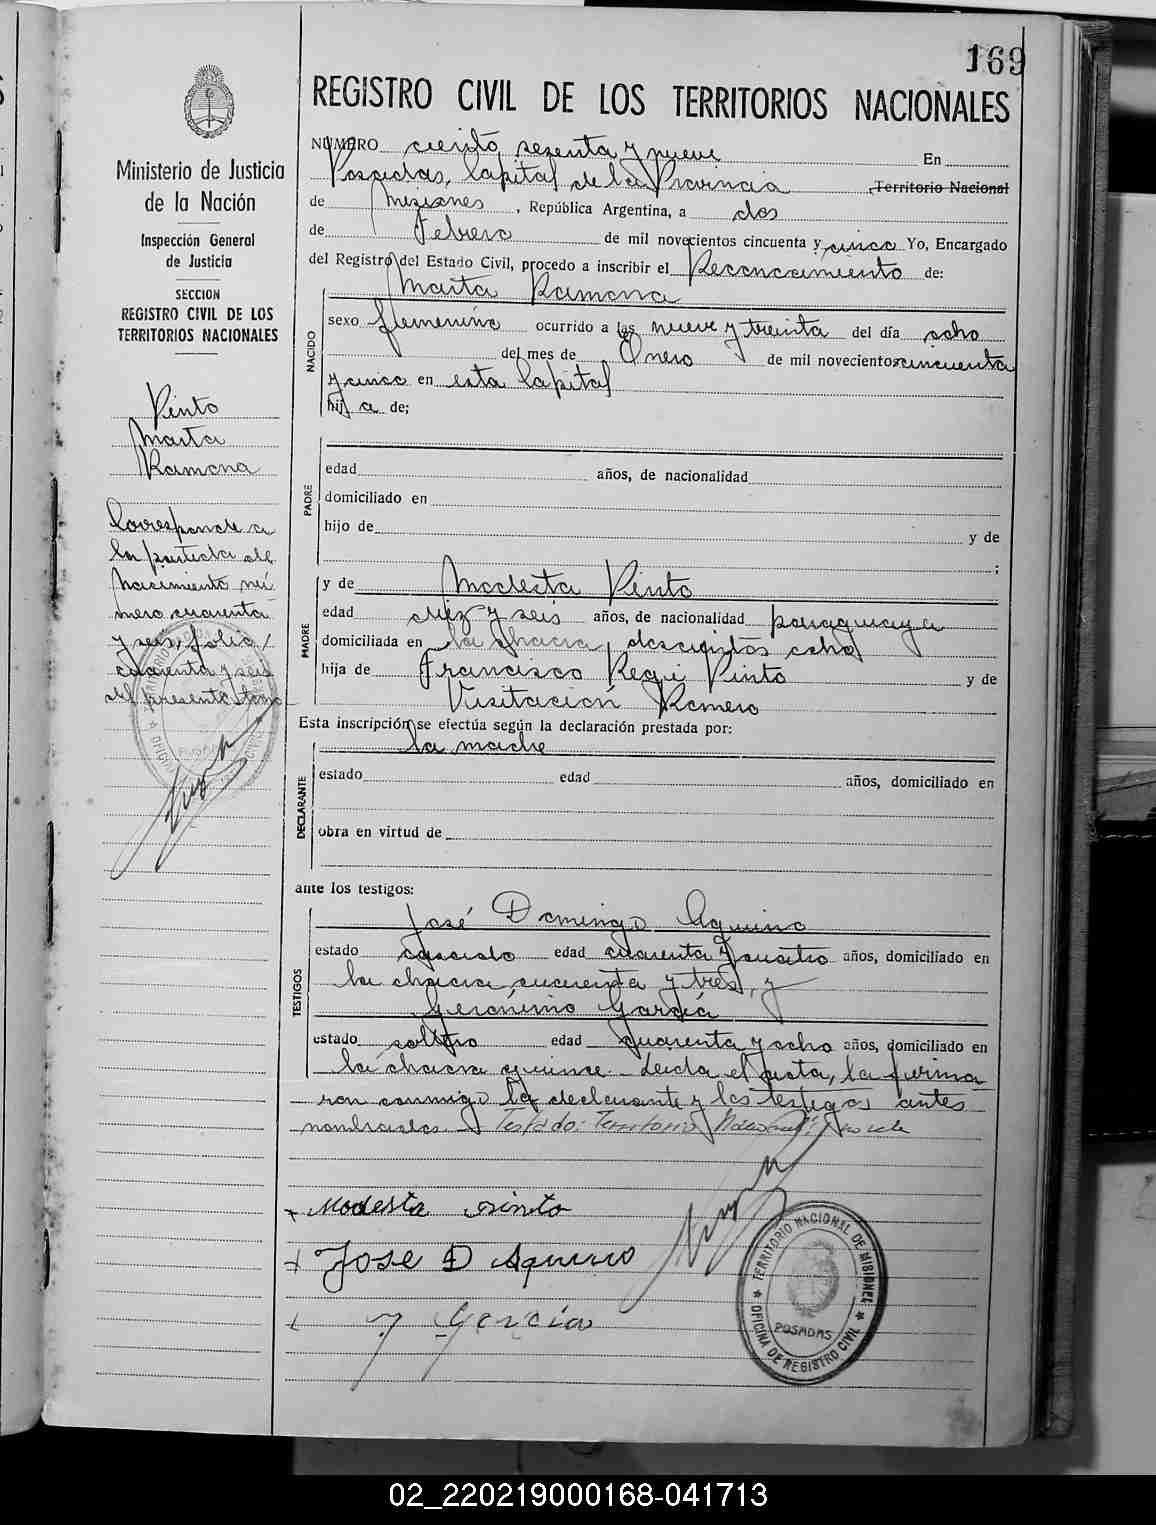 169
REGISTRO CIVIL DE LOS TERRITORIOS NACIONALES
Ministerio de Justicia
de la Nación
Inspección General
de Justicia
SECCION
REGISTRO CIVIL DE LOS
TERRITORIOS NACIONALES
Pinto
Marta
Ramona
Corresponde a
la partida de
Nacimiento nú
mero cuarenta
y seis, folio
cuarenta y seis
del presente tomo
NUMERO ciento sesenta y nueve En
Posadas, Capital de la Provincia Territorio Nacional
de Misiones, República Argentina, a dos
de Febrero de mil novecientos cincuenta y cinco Yo, Encargado
del Registro del Estado Civil, procedo a inscribir el Reconocimiento de:
Marta Ramona
NACIDO
sexo femenino ocurrido a las nueve y treinta del día ocho
del mes de Enero de mil novecientos cincuenta
y cinco en esta Capital
hija de;
PADRE
edad años, de nacionalidad
domiciliado en
hijo de y de
;
MADRE
y de Modesta Pinto
edad diez y seis años, de nacionalidad paraguaya
domiciliada en la chacra doscientos ocho
hija de Francisco Regi Pinto y de
Visitación Romero
Esta inscripción se efectúa según la declaración prestada por:
la madre
DECLARANTE
estado edad años, domiciliado en
obra en virtud de
ante los testigos:
TESTIGOS
José Domingo Aquino
estado casado edad cuarenta y cuatro años, domiciliado en
la chacra cuarenta y tres, y
Gerónimo García
estado soltero edad cuarenta y ocho años, domiciliado en
la chacra quince. Leida el acta, la firma
ron conmigo la declarante y los testigos antes
nombrados. Testado: Territorio Nacional; no vale
Modesta Pinto
Jose D Aquino
J García
TERRITORIO NACIONAL DE MISIONES
POSADAS
OFICINA DE REGISTRO CIVIL
02_220219000168-041713